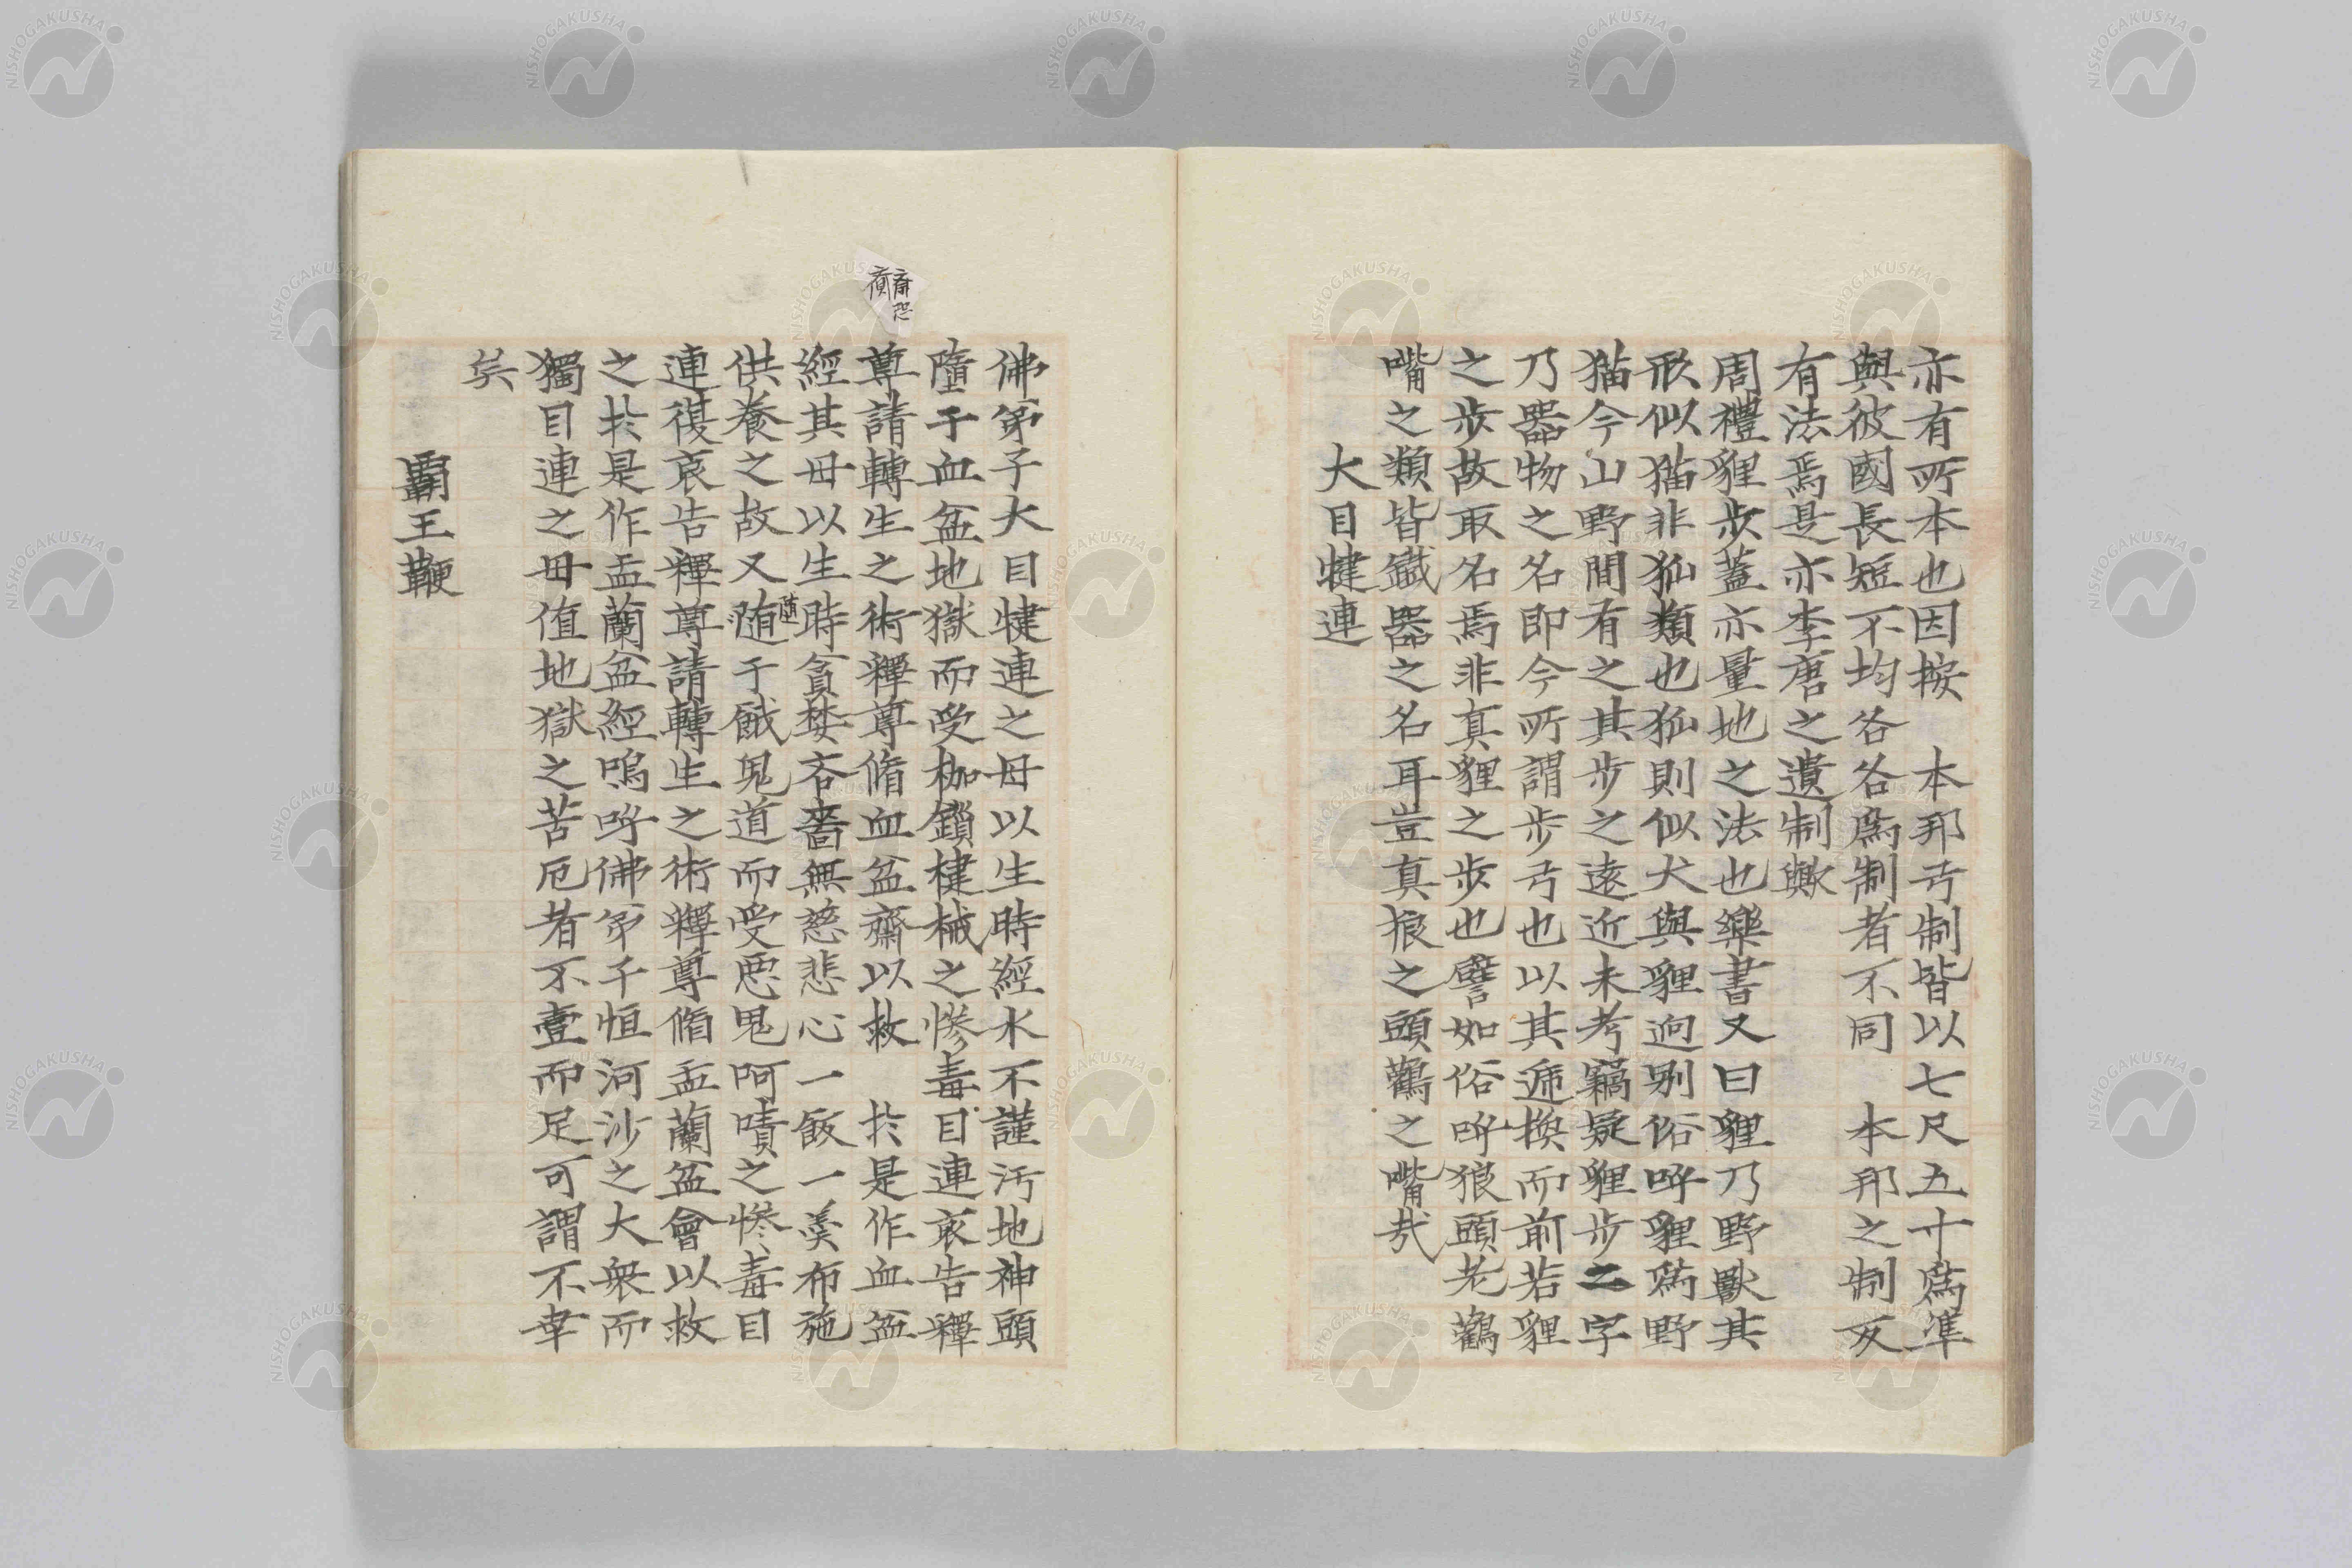 亦有所本也因按　本邦弓制皆以七尺五寸爲準
與彼國長短不均各各爲制者不同　本邦之制反
有法焉是亦李唐之遺制歟
周禮貍步蓋亦量地之法也樂書又曰貍乃野獸其
形似猫非狐類也狐則似犬與貍迥別俗呼貍爲野
猫今山野間有之其步之遠近未考竊疑貍步二字
乃器物之名即今所謂步弓也以其遞換而前若貍
之步故取名焉非真貍之步也譬如俗呼狼頭老鸛
嘴之類皆鐵器之名耳豈真狼之頭鸛之嘴哉
大目犍連
佛第子大目犍連之母以生時經水不謹汚地神頭
墮于血盆地獄而受枷鎖楗械之慘毒目連哀告釋
尊請轉生之術釋尊脩血盆齋以救　於是作血盆
經其母以生時貪婪吝嗇無慈悲心一飯一羹布施
供養之故又隨于餓鬼道而受惡鬼阿嘖之慘毒目
墮
連復哀告釋尊請轉生之術釋尊脩盂蘭盆會以救
之於是作盂蘭盆經嗚呼佛第千恒河沙之大衆而
獨目連之母值地獄之苦厄者不壹而足可謂不幸
矣
霸王鞭
NISHOGAKUSHA